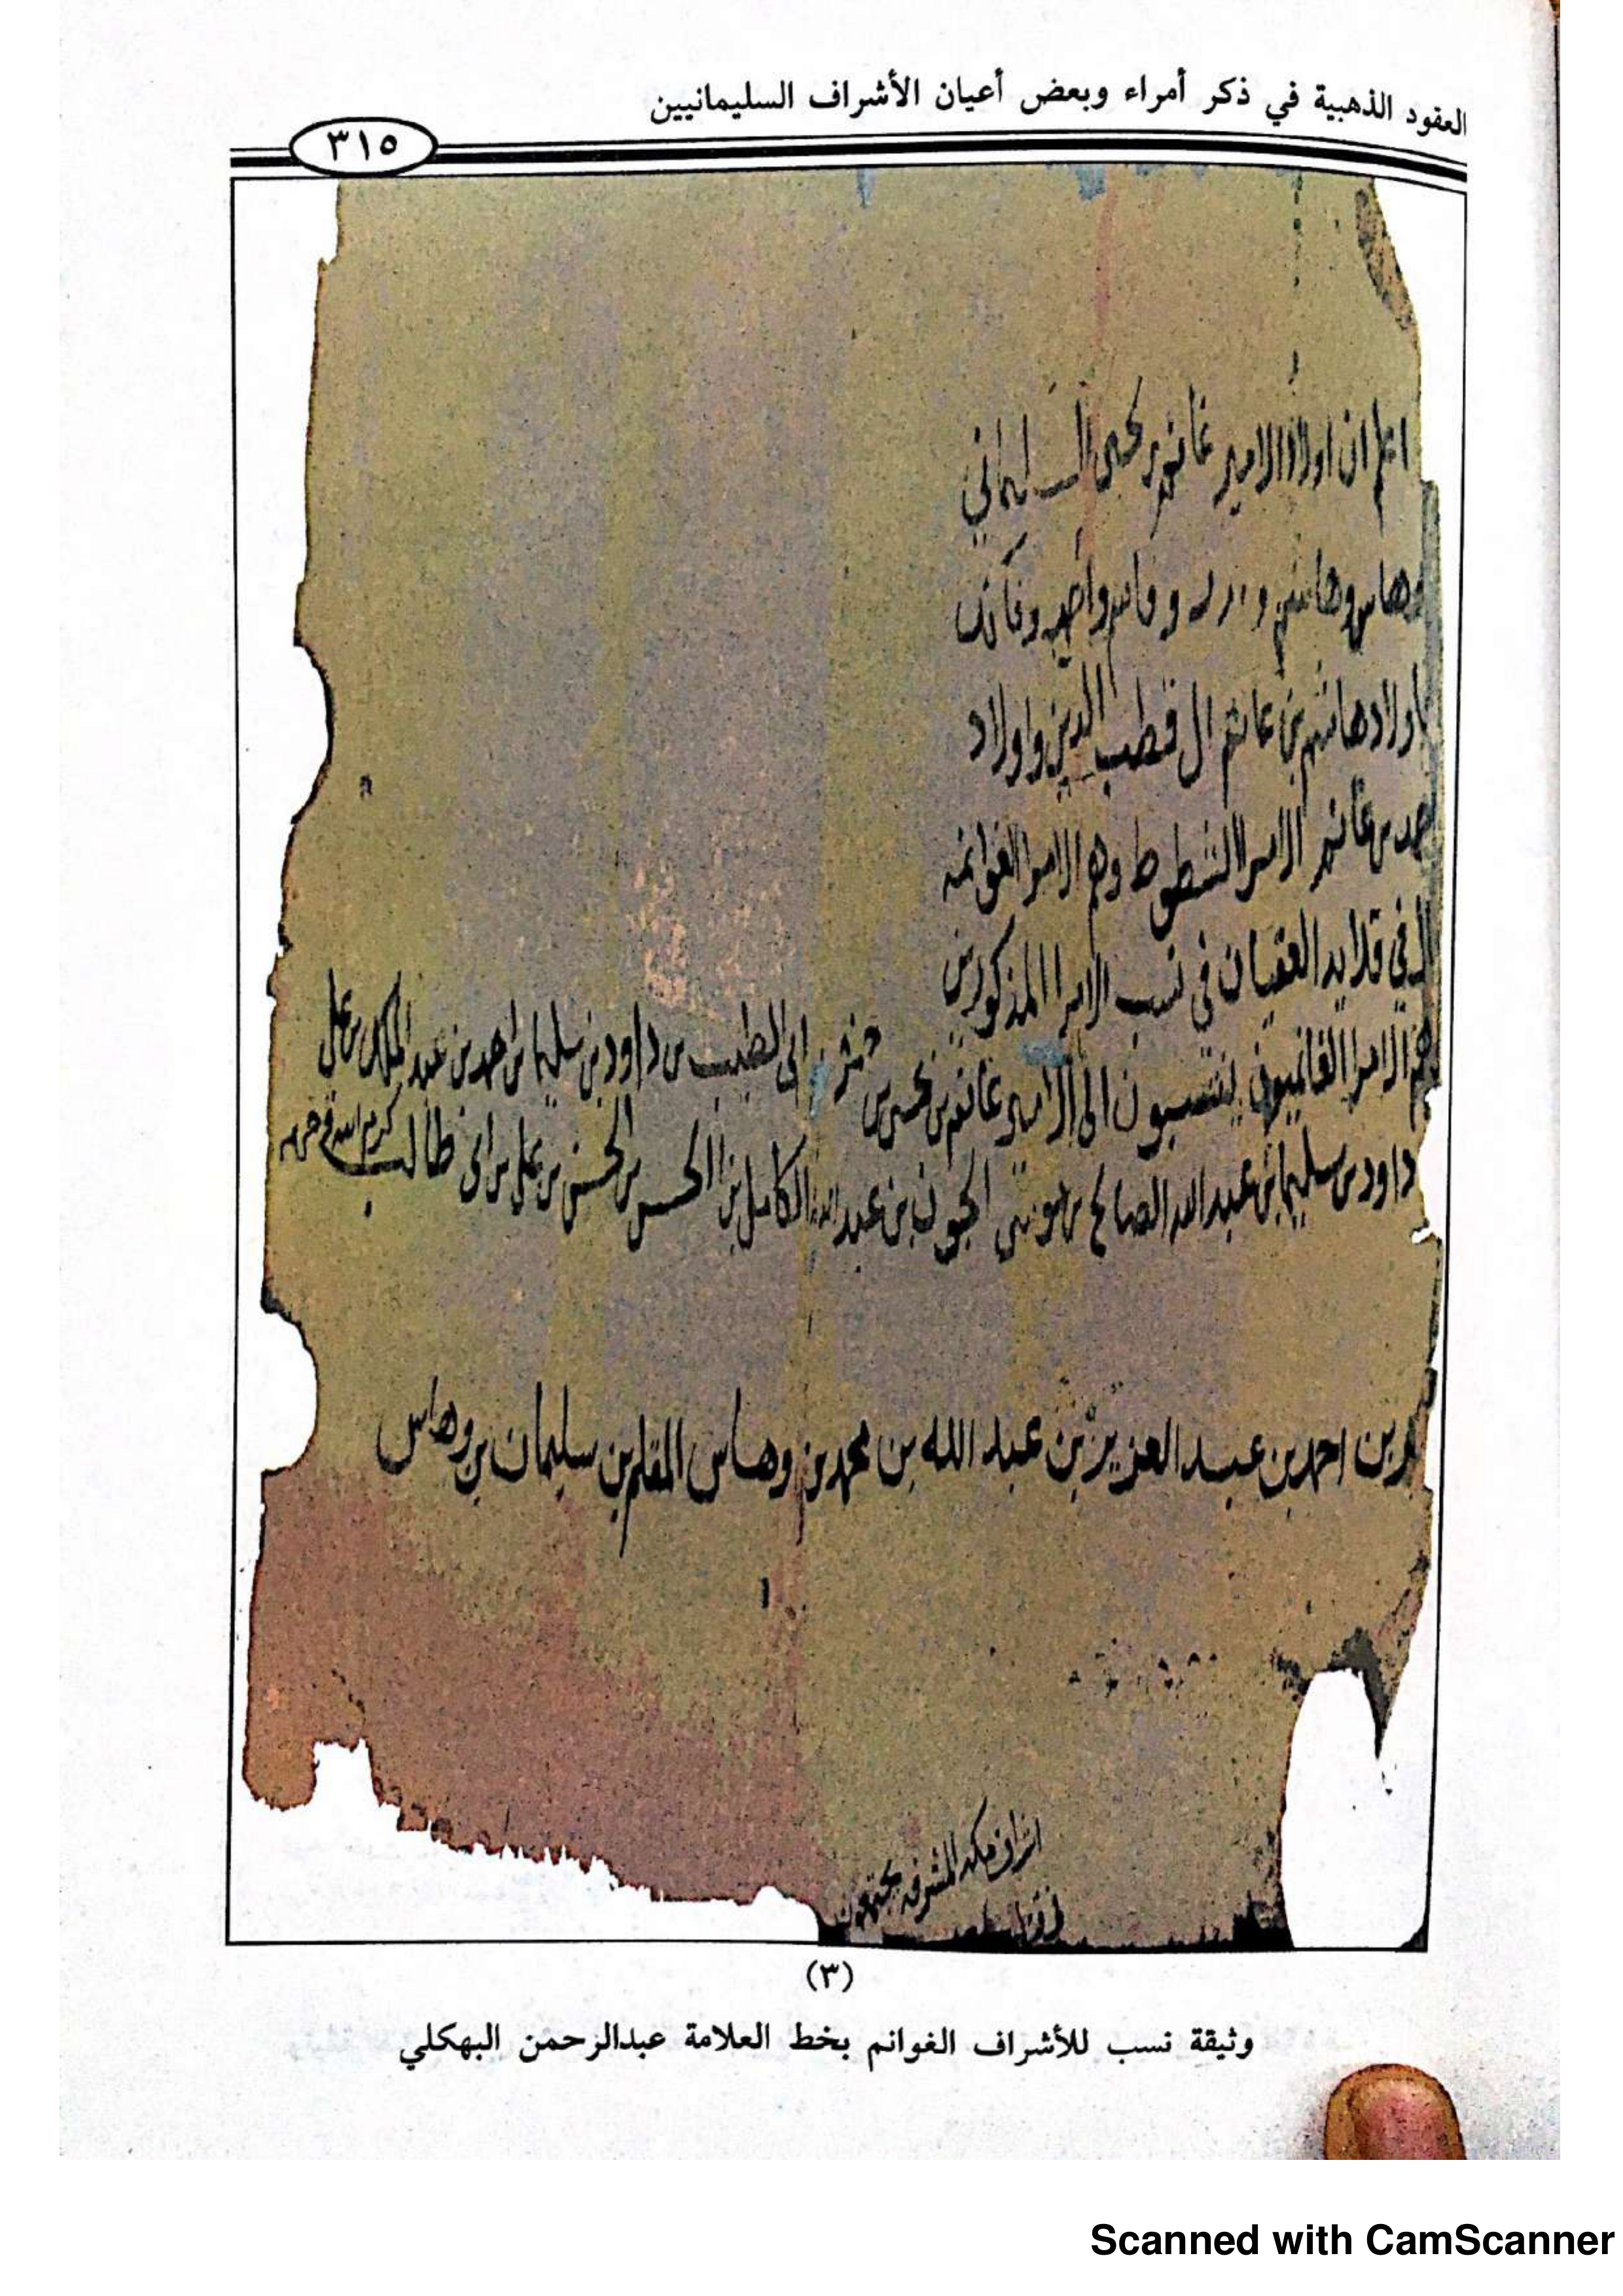 العقود الذهبية في ذكر أمراء وبعض أعيان الأشراف السليمانيين
٣١٥
اعلم ان اولاد الامير غانم بن يحيى السليماني
وهاس وهاشم و و قاسم واحمد وفاتك
اولاد هاشم بن غانم ال قطب الدين واولاد
احمد بن غانم الامرا الشطوط وهم الامرا الغوانمه
في قلايد العقيان في نسب الامرا المذكورين
هم الامرا الغانميون ينتسبون الى الامير غانم بن يحيى بن حمزه بن ابي الطيب بن داود بن سليمان بن احمد بن عبد الملك بن علي
داود بن سليمان بن عبد الله الصالح بن موسى الجون بن عبد الله الكامل بن الحسن بن الحسن بن علي بن ابي طالب كرم الله وجهه
بن احمد بن عبد العزيز بن عبد الله بن محمد بن وهاس المقلم بن سليمان بن وهاس
اشراف مكه المشرفه يجتمعون
(٣)
وثيقة نسب للأشراف الغوانم بخط العلامة عبدالرحمن البهكلي
Scanned with CamScanner